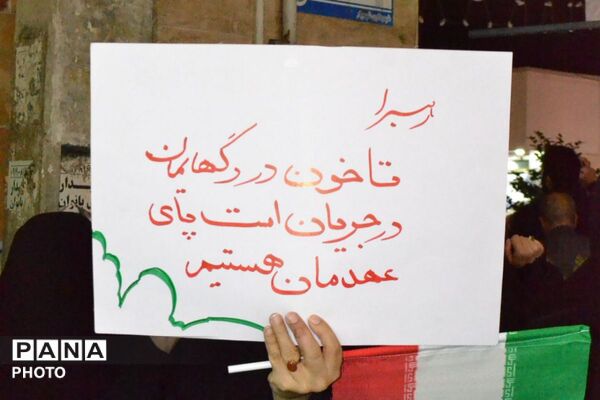 رهبرا
تا خون در رگهایمان
در جریان است پای
عهدمان هستیم
PANA
PHOTO